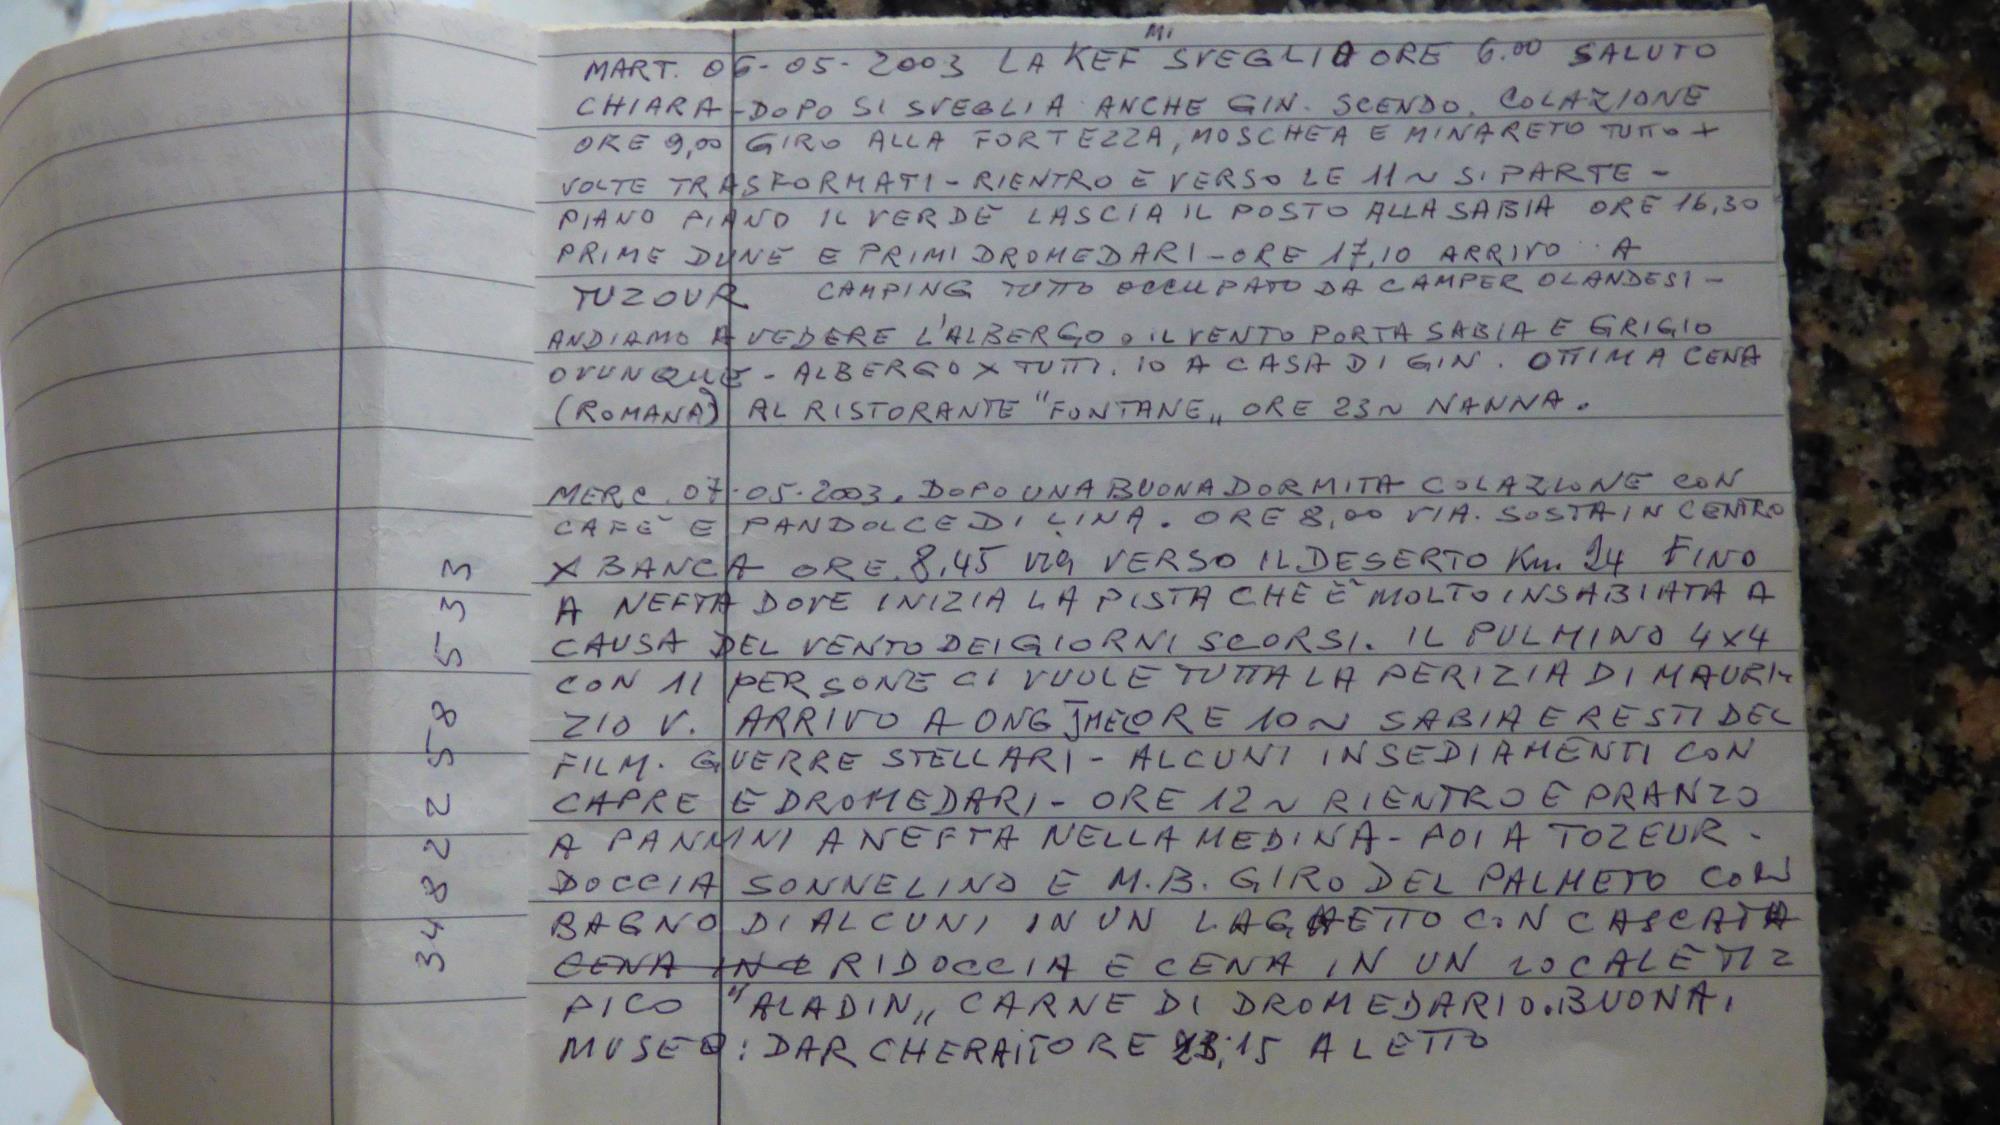 MART. 06-05-2003 LA KEF MI SVEGLIO ORE 6.00 SALUTO
CHIARA-DOPO SI SVEGLIA ANCHE GIN. SCENDO. COLAZIONE
ORE 9,00 GIRO ALLA FORTEZZA, MOSCHEA E MINARETO TUTTO +
VOLTE TRASFORMATI-RIENTRO E VERSO LE 11~ SI PARTE -
PIANO PIANO IL VERDE LASCIA IL POSTO ALLA SABIA ORE 16,30
PRIME DUNE E PRIMI DROMEDARI-ORE 17,10 ARRIVO A
TUZOUR CAMPING TUTTO OCCUPATO DA CAMPER OLANDESI-
ANDIAMO A VEDERE L'ALBERGO. IL VENTO PORTA SABIA E GRIGIO
OVUNQUE - ALBERGO X TUTTI. IO A CASA DI GIN. OTTIMA CENA
(ROMANA) AL RISTORANTE "FONTANE„ ORE 23~ NANNA.
MERC. 07-05-2003. DOPO UNA BUONA DORMITA COLAZIONE CON
CAFÈ E PANDOLCE DI LINA. ORE 8,00 VIA. SOSTA IN CENTRO
X BANCA ORE 8,45 via VERSO IL DESERTO Km. 24 FINO
A NEFTA DOVE INIZIA LA PISTA CHE È MOLTO INSABIATA A
CAUSA DEL VENTO DEI GIORNI SCORSI. IL PULMINO 4x4
CON 11 PERSONE CI VUOLE TUTTA LA PERIZIA DI MAURI-
ZIO V. ARRIVO A ONG JMEL ORE 10~ SABIA E RESTI DEL
FILM. GUERRE STELLARI - ALCUNI INSEDIAMENTI CON
CAPRE E DROMEDARI- ORE 12~ RIENTRO E PRANZO
A PANINI A NEFTA NELLA MEDINA-POI A TOZEUR-
DOCCIA SONNELINO E M.B. GIRO DEL PALMETO CON
BAGNO DI ALCUNI IN UN LAGHETTO CON CASCATA
CENA IN RIDOCCIA E CENA IN UN LOCALE TI-
PICO "ALADIN„ CARNE DI DROMEDARIO.BUONA.
MUSEO: DAR CHERAIT ORE 23,15 A LETTO
348 2258 533